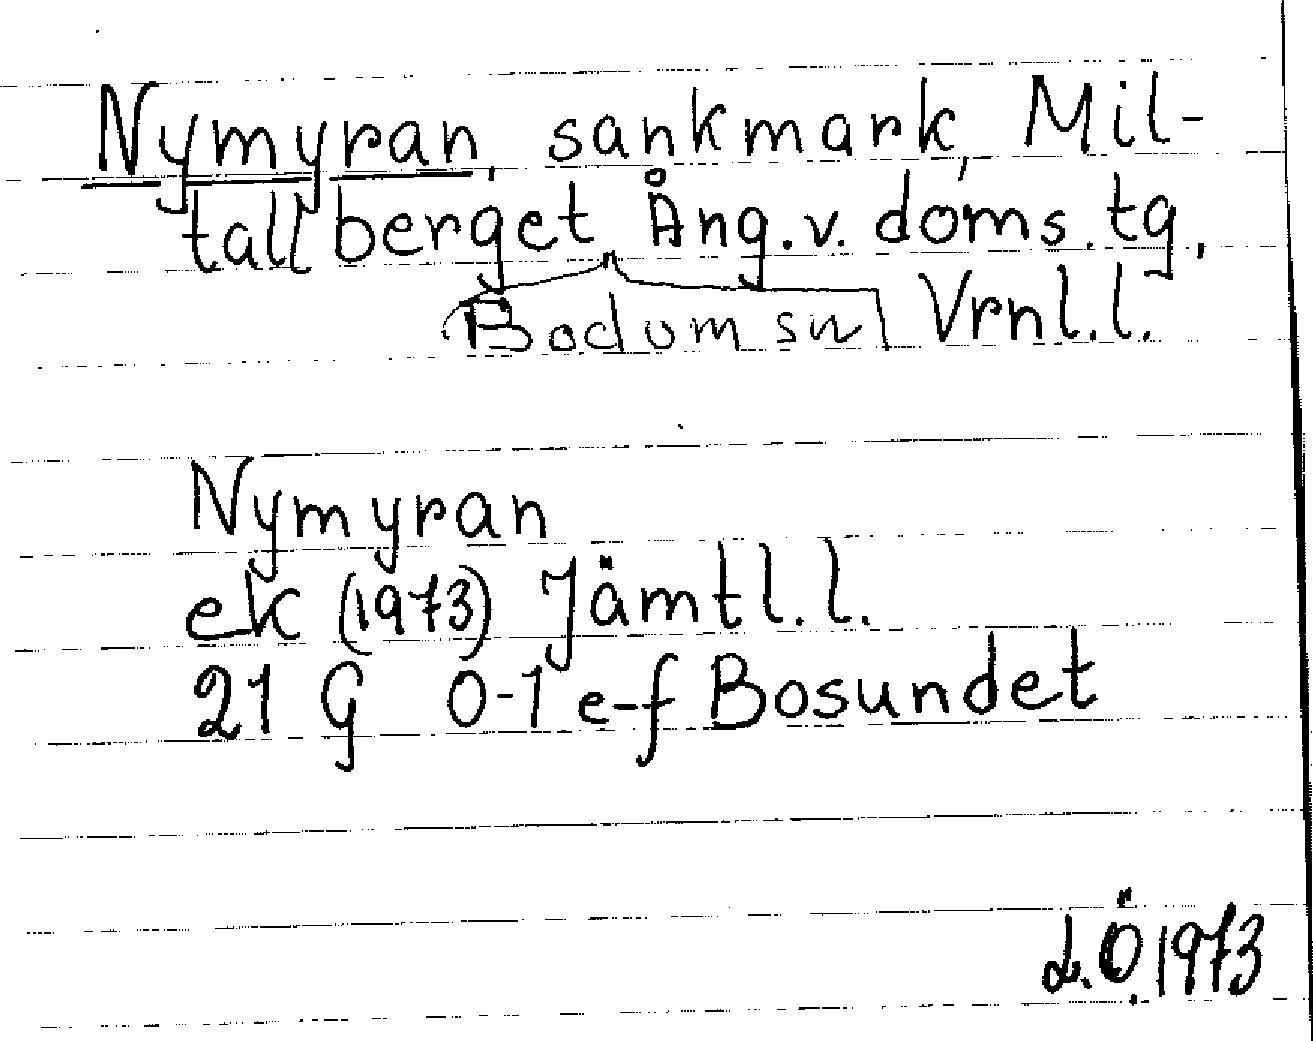 Nymyran, sankmark, Mil-
tallberget, Ång.v. doms. tg,
Bodum sn Vrnl.l.
Nymyran
ek (1973) Jämtl.l.
21 G 0-1 e-f Bosundet
L.Ö. 1973